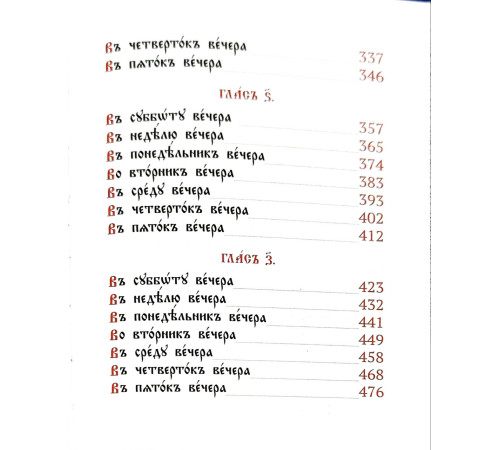 Въ четверто́къ ве́чера 337
Въ пѧто́къ ве́чера 346
Гла́съ ѕ҃.
Въ сꙋббѡ́тꙋ ве́чера 357
Въ недѣ́лю ве́чера 365
Въ понедѣ́льникъ ве́чера 374
Во вто́рникъ ве́чера 383
Въ сре́дꙋ ве́чера 393
Въ четверто́къ ве́чера 402
Въ пѧто́къ ве́чера 412
Гла́съ з҃.
Въ сꙋббѡ́тꙋ ве́чера 423
Въ недѣ́лю ве́чера 432
Въ понедѣ́льникъ ве́чера 441
Во вто́рникъ ве́чера 449
Въ сре́дꙋ ве́чера 458
Въ четверто́къ ве́чера 468
Въ пѧто́къ ве́чера 476